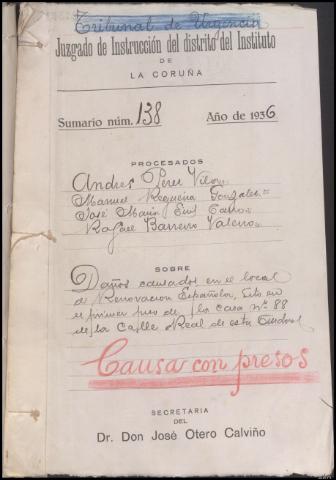 Tribunal de Urgencia
Juzgado de Instrucción del distrito del Instituto
DE
LA CORUÑA
Sumario núm. 138 Año de 1936
PROCESADOS
Andres Perez Vilar
Manuel Requena Gonzalez=
José Maria Eiris Castro=
Rafael Barreiro Valeiro=
SOBRE
Daños causados en el local
de Renovacion Española, sito en
el primer piso de la casa nº 88
de la Calle Real de esta Ciudad
Causa con presos
SECRETARIA
DEL
Dr. Don José Otero Calviño